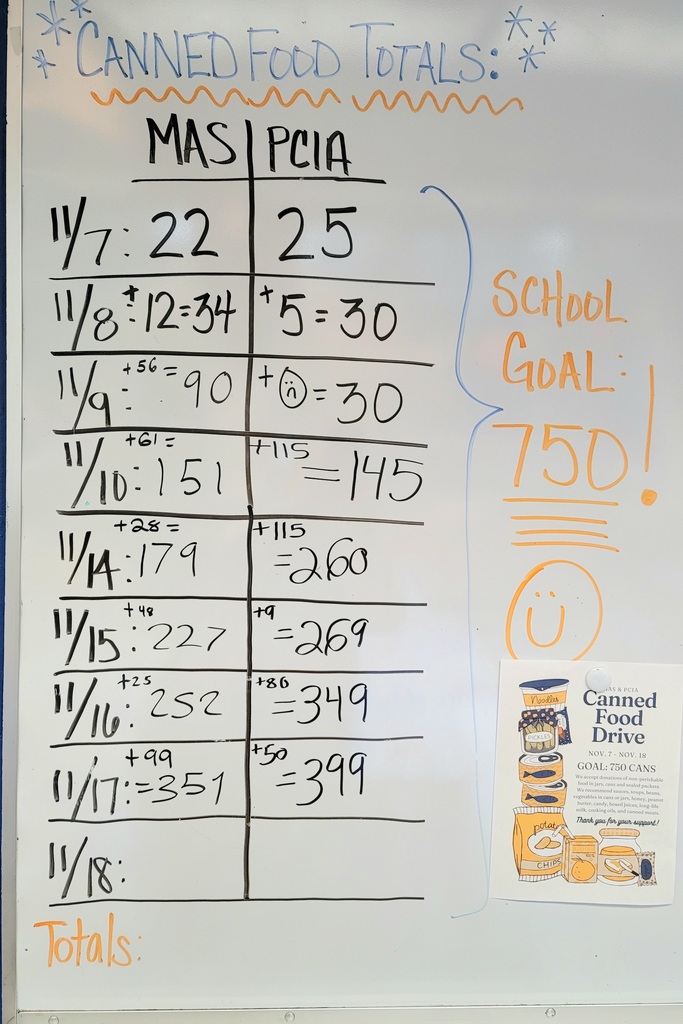 CANNED FOOD TOTALS:
MAS PCIA
11/7: 22 25
11/8: +12=34 +5=30
11/9: +56= 90 + =30
11/10: +61= 151 +115 =145
11/14: +28= 179 +115 =260
11/15: +48 227 +9 =269
11/16: +25 252 +80 =349
11/17: +99 =351 +50 =399
11/18:
Totals:
SCHOOL
GOAL:
750!
MAS & PCIA
Canned
Food
Drive
NOV. 7 - NOV. 18
GOAL: 750 CANS
We accept donations of non-perishable
food in jars, cans and sealed packets.
We recommend sauces, soups, beans,
vegetables in cans or jars, honey, peanut
butter, candy, boxed juices, long-life
milk, cooking oils, and canned meats.
Thank you for your support!
Noodles
PICKLES
potato
CHIPS